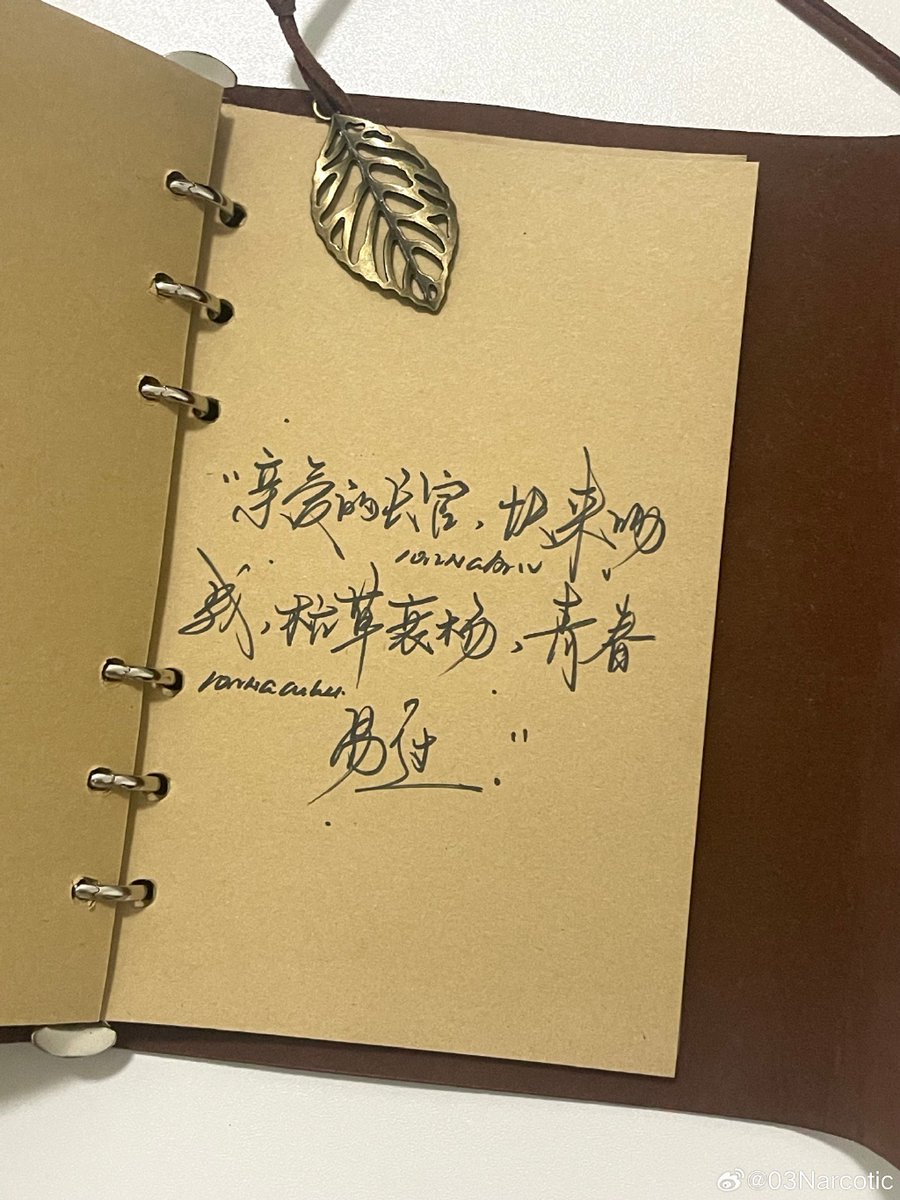 “亲爱的长官,快来吻
我,枯草衰杨,青春
易逝.”
@03Narcotic